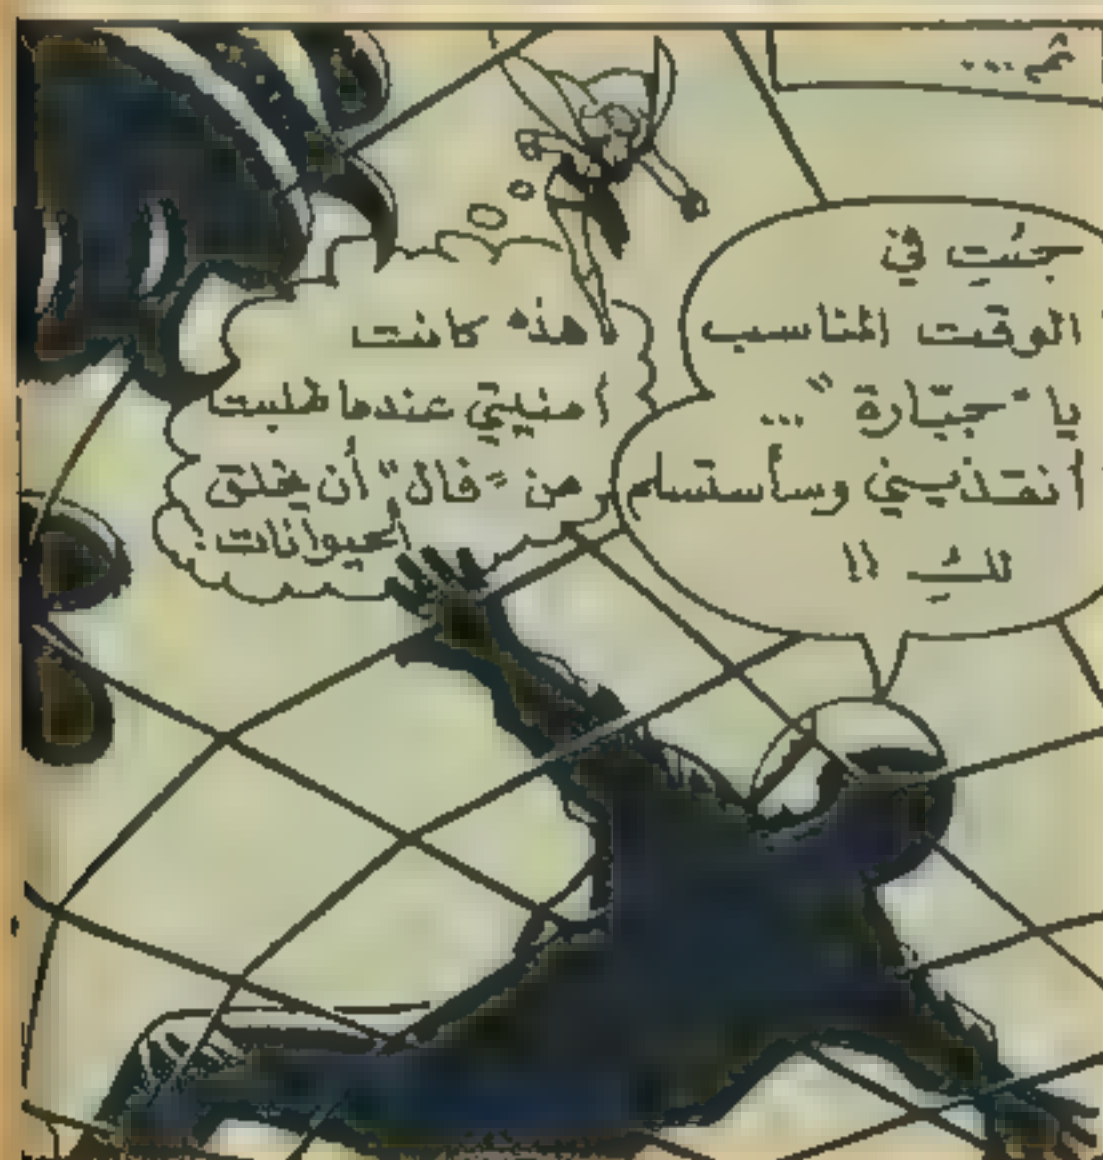 ثم...
جئتِ في
الوقت المناسب
يا "جبّارة"...
أنقذيني وسأستسلم
لكِ !!
هذه كانت
أمنيتي عندما طلبت
من "فال" أن يخلق
الحيوانات!